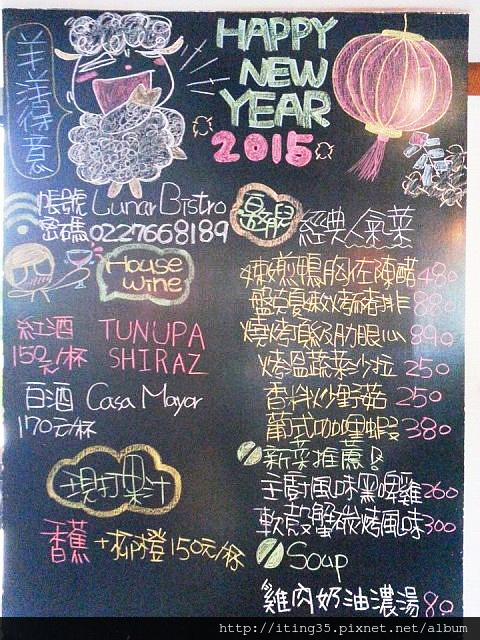 羊洋得意
HAPPY
NEW
YEAR
2015
帳號 Lunar Bistro
密碼 0227668189
House
wine
紅酒 TUNUPA
150元/杯 SHIRAZ
白酒 Casa Mayor
170元/杯
現打果汁
香蕉+柳橙 150元/杯
經典人氣菜
嫩煎鴨胸佐陳醋 480
盤烤豬排 880
燒烤頂級肋眼心 890
烤溫蔬菜沙拉 250
香料炒野菇 250
葡式咖哩蝦 380
新菜推薦!
主廚風味黑啤雞 260
軟殼蟹碳烤風味 300
Soup
雞肉奶油濃湯 80
http://iting35.pixnet.net/album